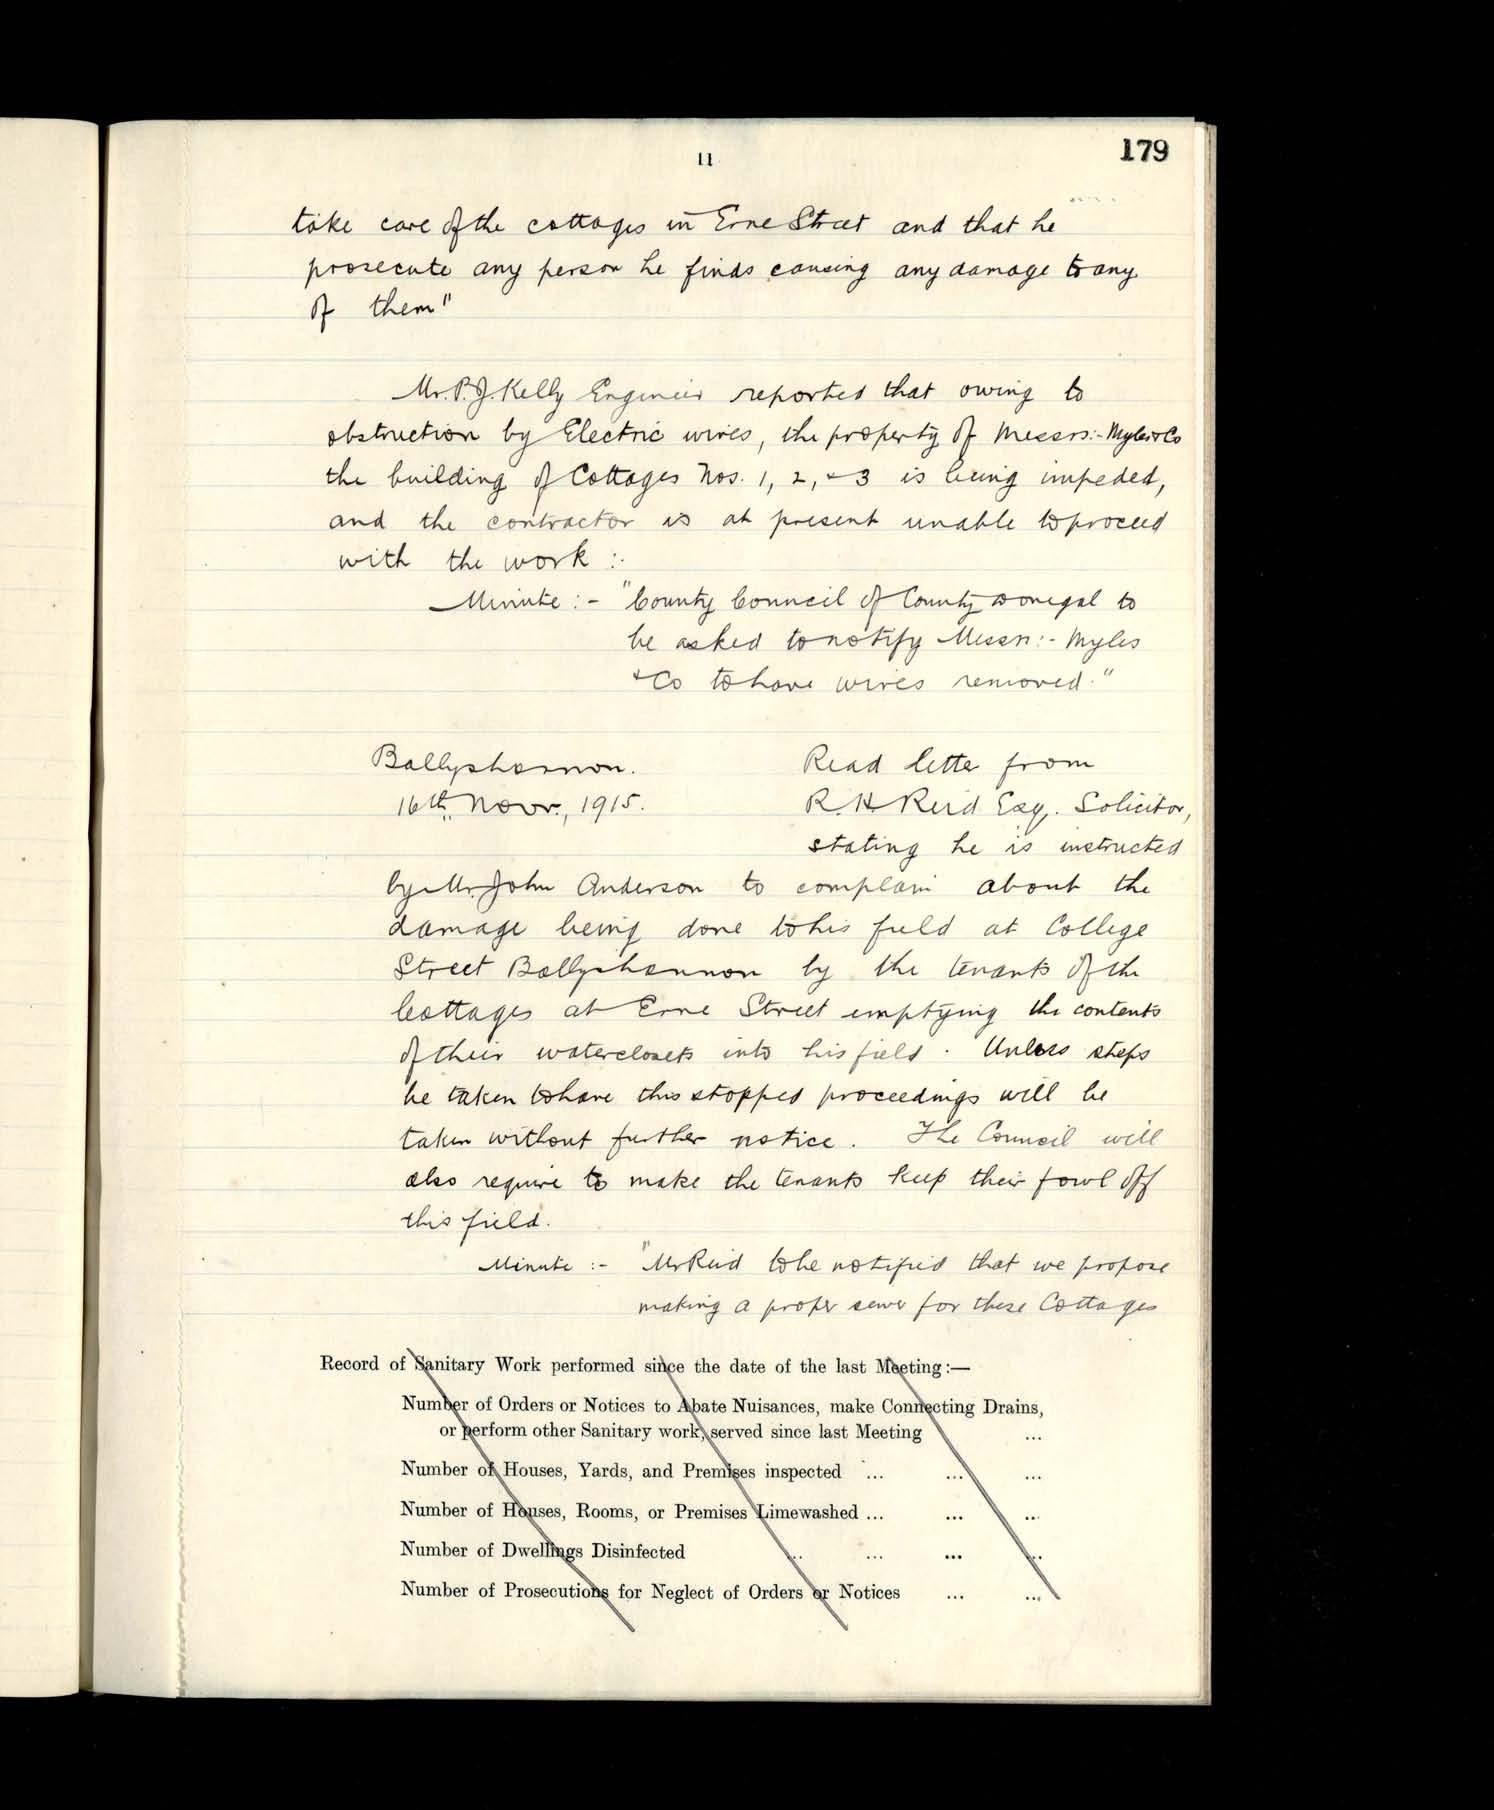 11
179
take care of the cottages in Erne Street and that he
prosecute any person he finds causing any damage to any
of them"
Mr. P. J. Kelly Engineer reported that owing to
obstruction by Electric wires, the property of Messrs:- Myles & Co
the building of Cottages Nos. 1, 2, & 3 is being impeded,
and the contractor is at present unable to proceed
with the work :-
Minute :- "County Council of County Donegal to
be asked to notify Messrs:- Myles
& Co to have wires removed."
Ballyshannon.
16th Novr., 1915.
Read letter from
R. H. Reid Esq. Solicitor,
stating he is instructed
by Mr. John Anderson to complain about the
damage being done to his field at College
Street Ballyshannon by the tenants of the
Cottages at Erne Street emptying the contents
of their waterclosets into his field. Unless steps
be taken to have this stopped proceedings will be
taken without further notice. The Council will
also require to make the tenants keep their fowl off
this field.
Minute :- "Mr Reid to be notified that we propose
making a proper sewer for these Cottages
Record of Sanitary Work performed since the date of the last Meeting:—
Number of Orders or Notices to Abate Nuisances, make Connecting Drains,
or perform other Sanitary work, served since last Meeting ...
Number of Houses, Yards, and Premises inspected ... ... ...
Number of Houses, Rooms, or Premises Limewashed ... ... ...
Number of Dwellings Disinfected ... ... ... ...
Number of Prosecutions for Neglect of Orders or Notices ... ...